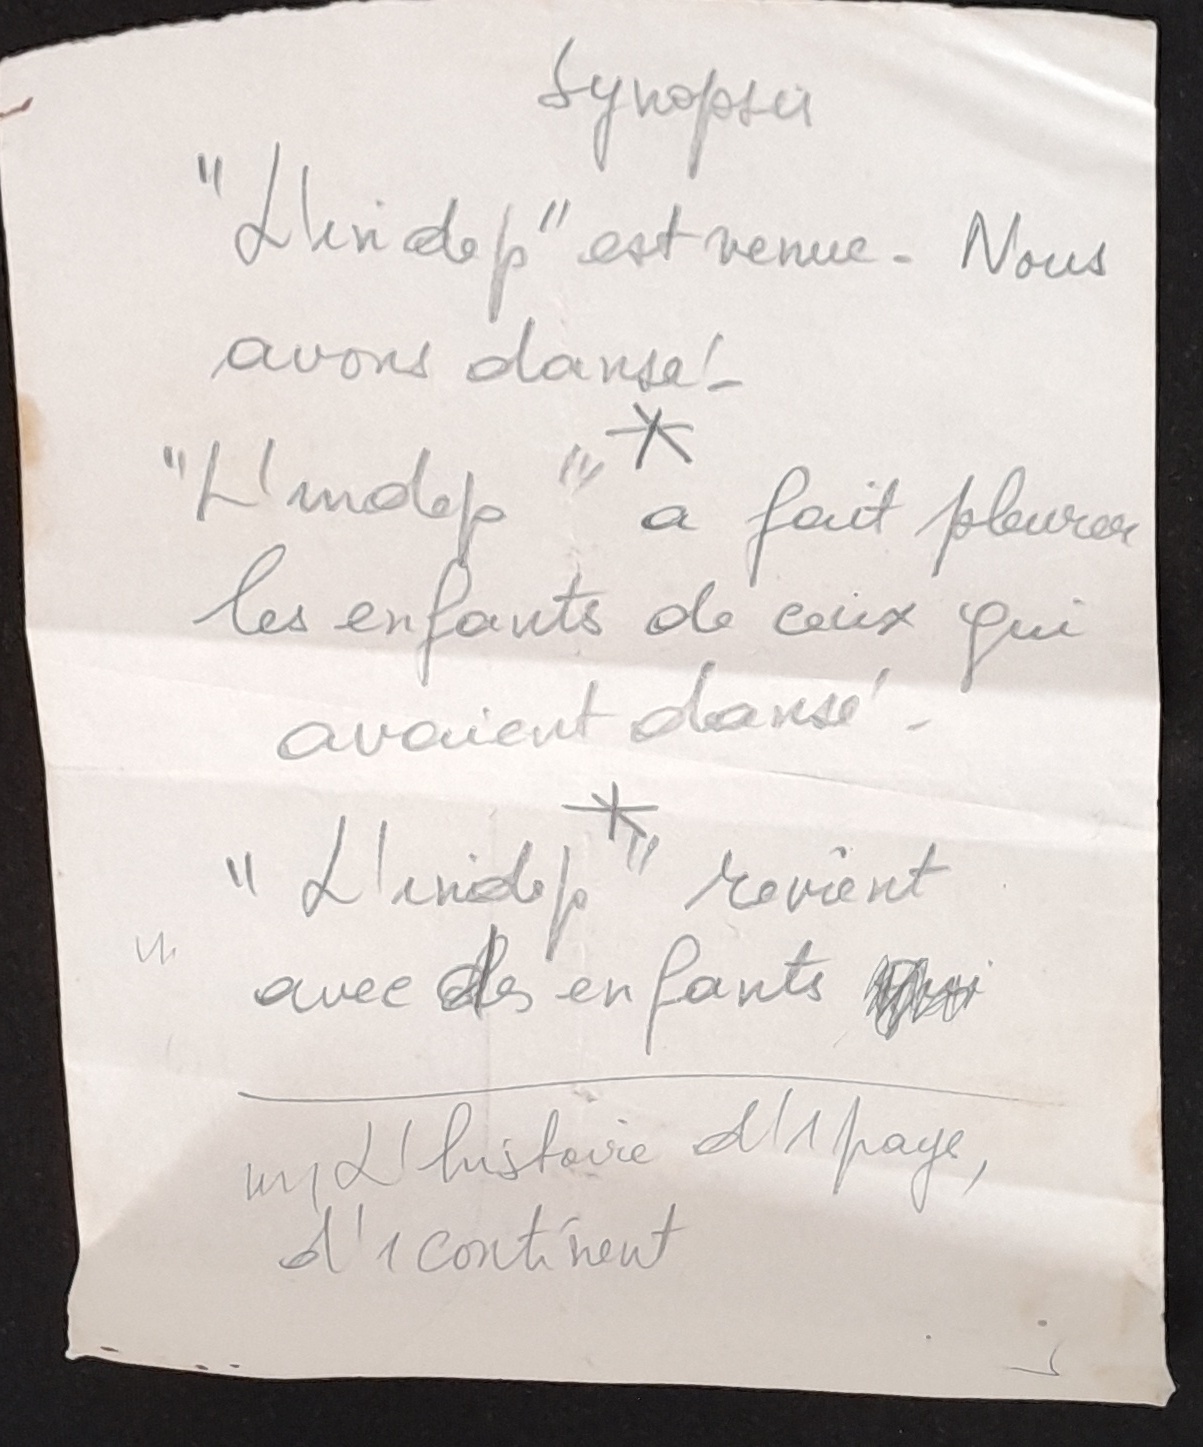 Synopsis
"L'indep" est venue. Nous
avons dansé -
*
"L'indep" a fait pleurer
les enfants de ceux qui
avaient dansé -
*
"L'indep" revient
avec des enfants
L'histoire d'1 pays,
d'1 continent